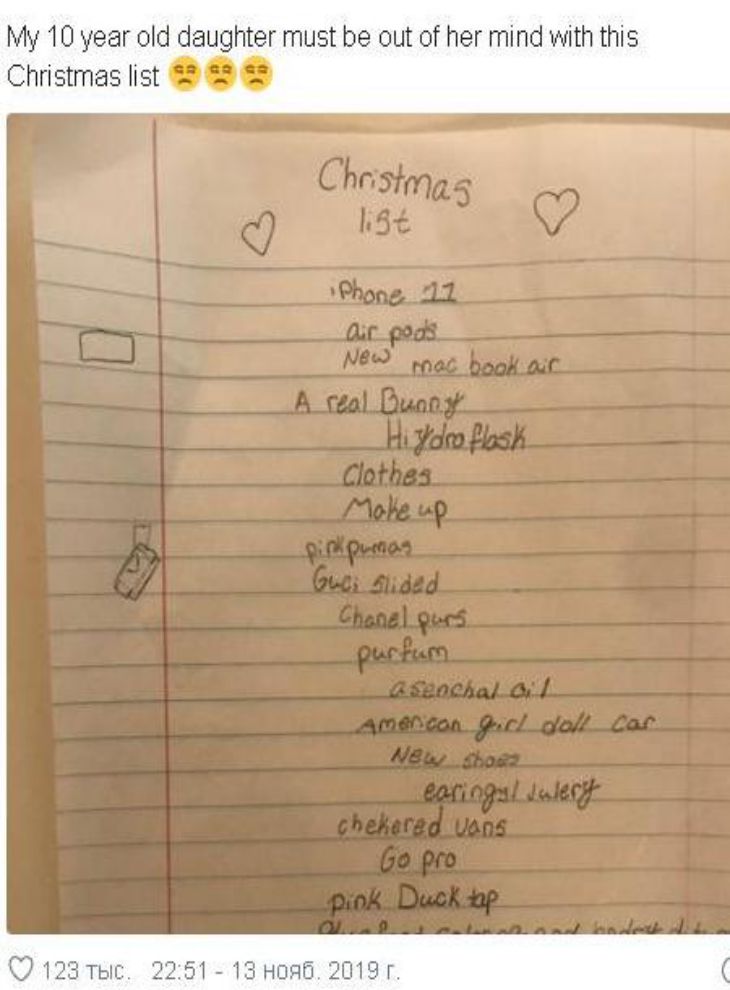 My 10 year old daughter must be out of her mind with this
Christmas list 😒😒😒
Christmas
list
iPhone 11
air pods
New mac book air
A real Bunny
Hiydroflask
Clothes
Make up
pink pumas
Guci slided
Chanel purs
purfum
asenchal oil
American girl doll car
New shoes
earings/Julery
chekered vans
Go pro
pink Duck tap
and
123 тыс. 22:51 - 13 нояб. 2019 г.